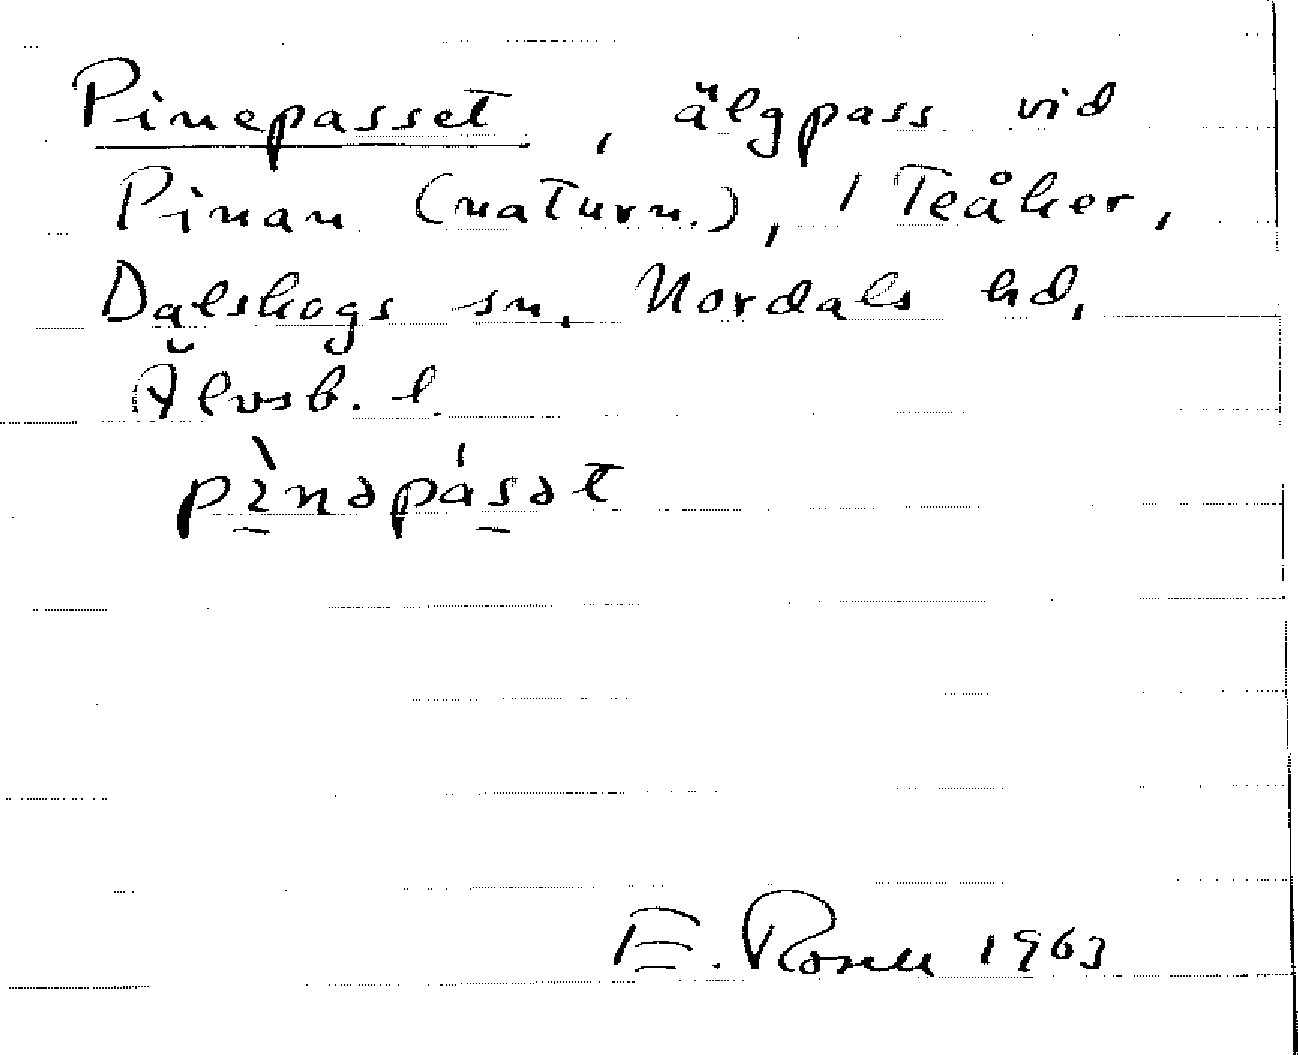 Pinepasset, älgpass vid
Pinan (naturn.), i Teåker,
Dalskogs sn, Nordals hd,
Älvsb. l.
pìnəpásət
E. Rosell 1963